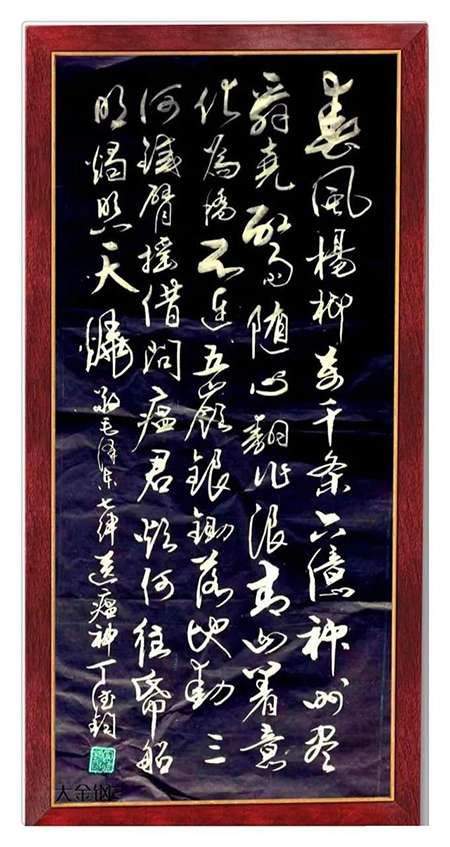 春風楊柳万千条六億神州尽
舜堯紅雨随心翻作浪青山着意
化為橋天連五嶺銀鋤落地動三
河鐵臂摇借問瘟君欲何往帋船
明燭照天燒 毛澤东七律送瘟神 丁
大金钢